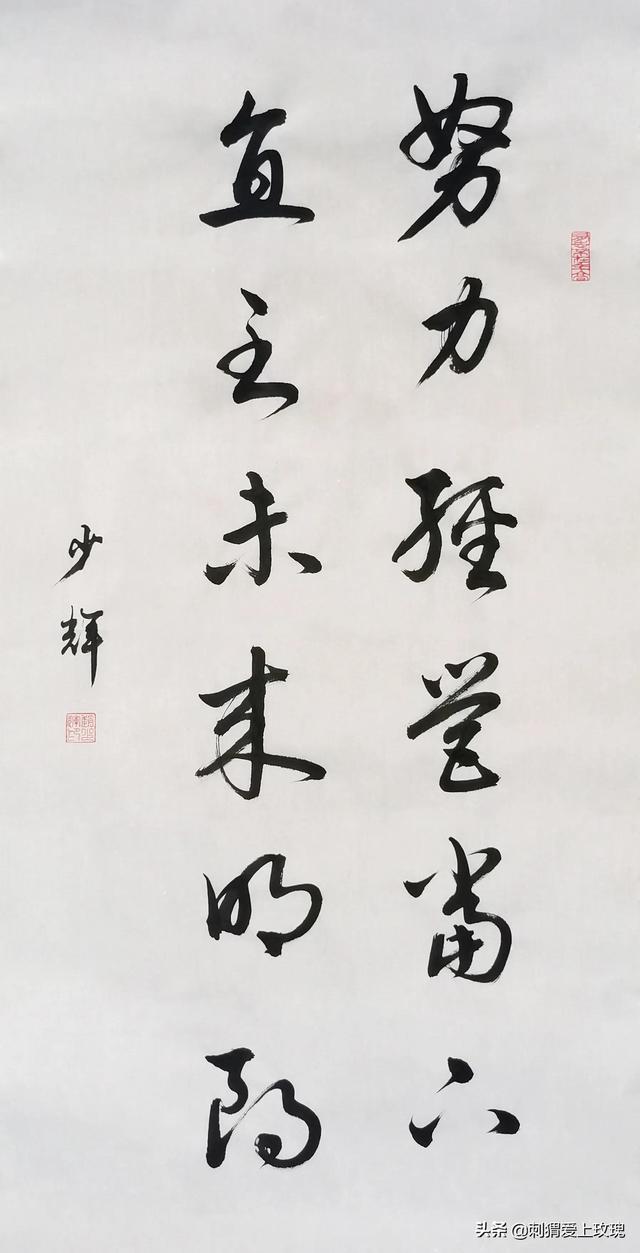 努力經營當下
直至未来明朗
少輝
头条 @刺猬爱上玫瑰